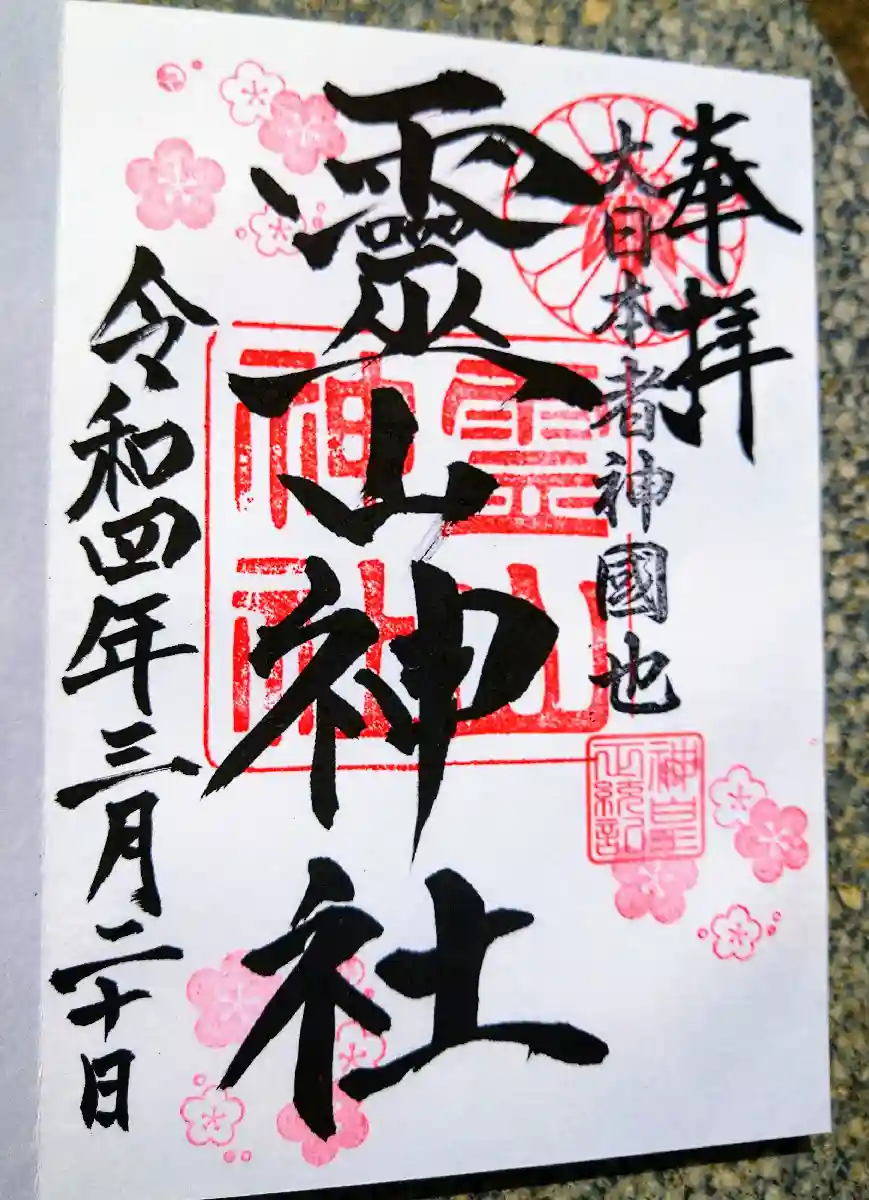 奉拝
大日本者神國也
靈山神社
霊山
神社
神皇
正統記
令和四年三月二十日